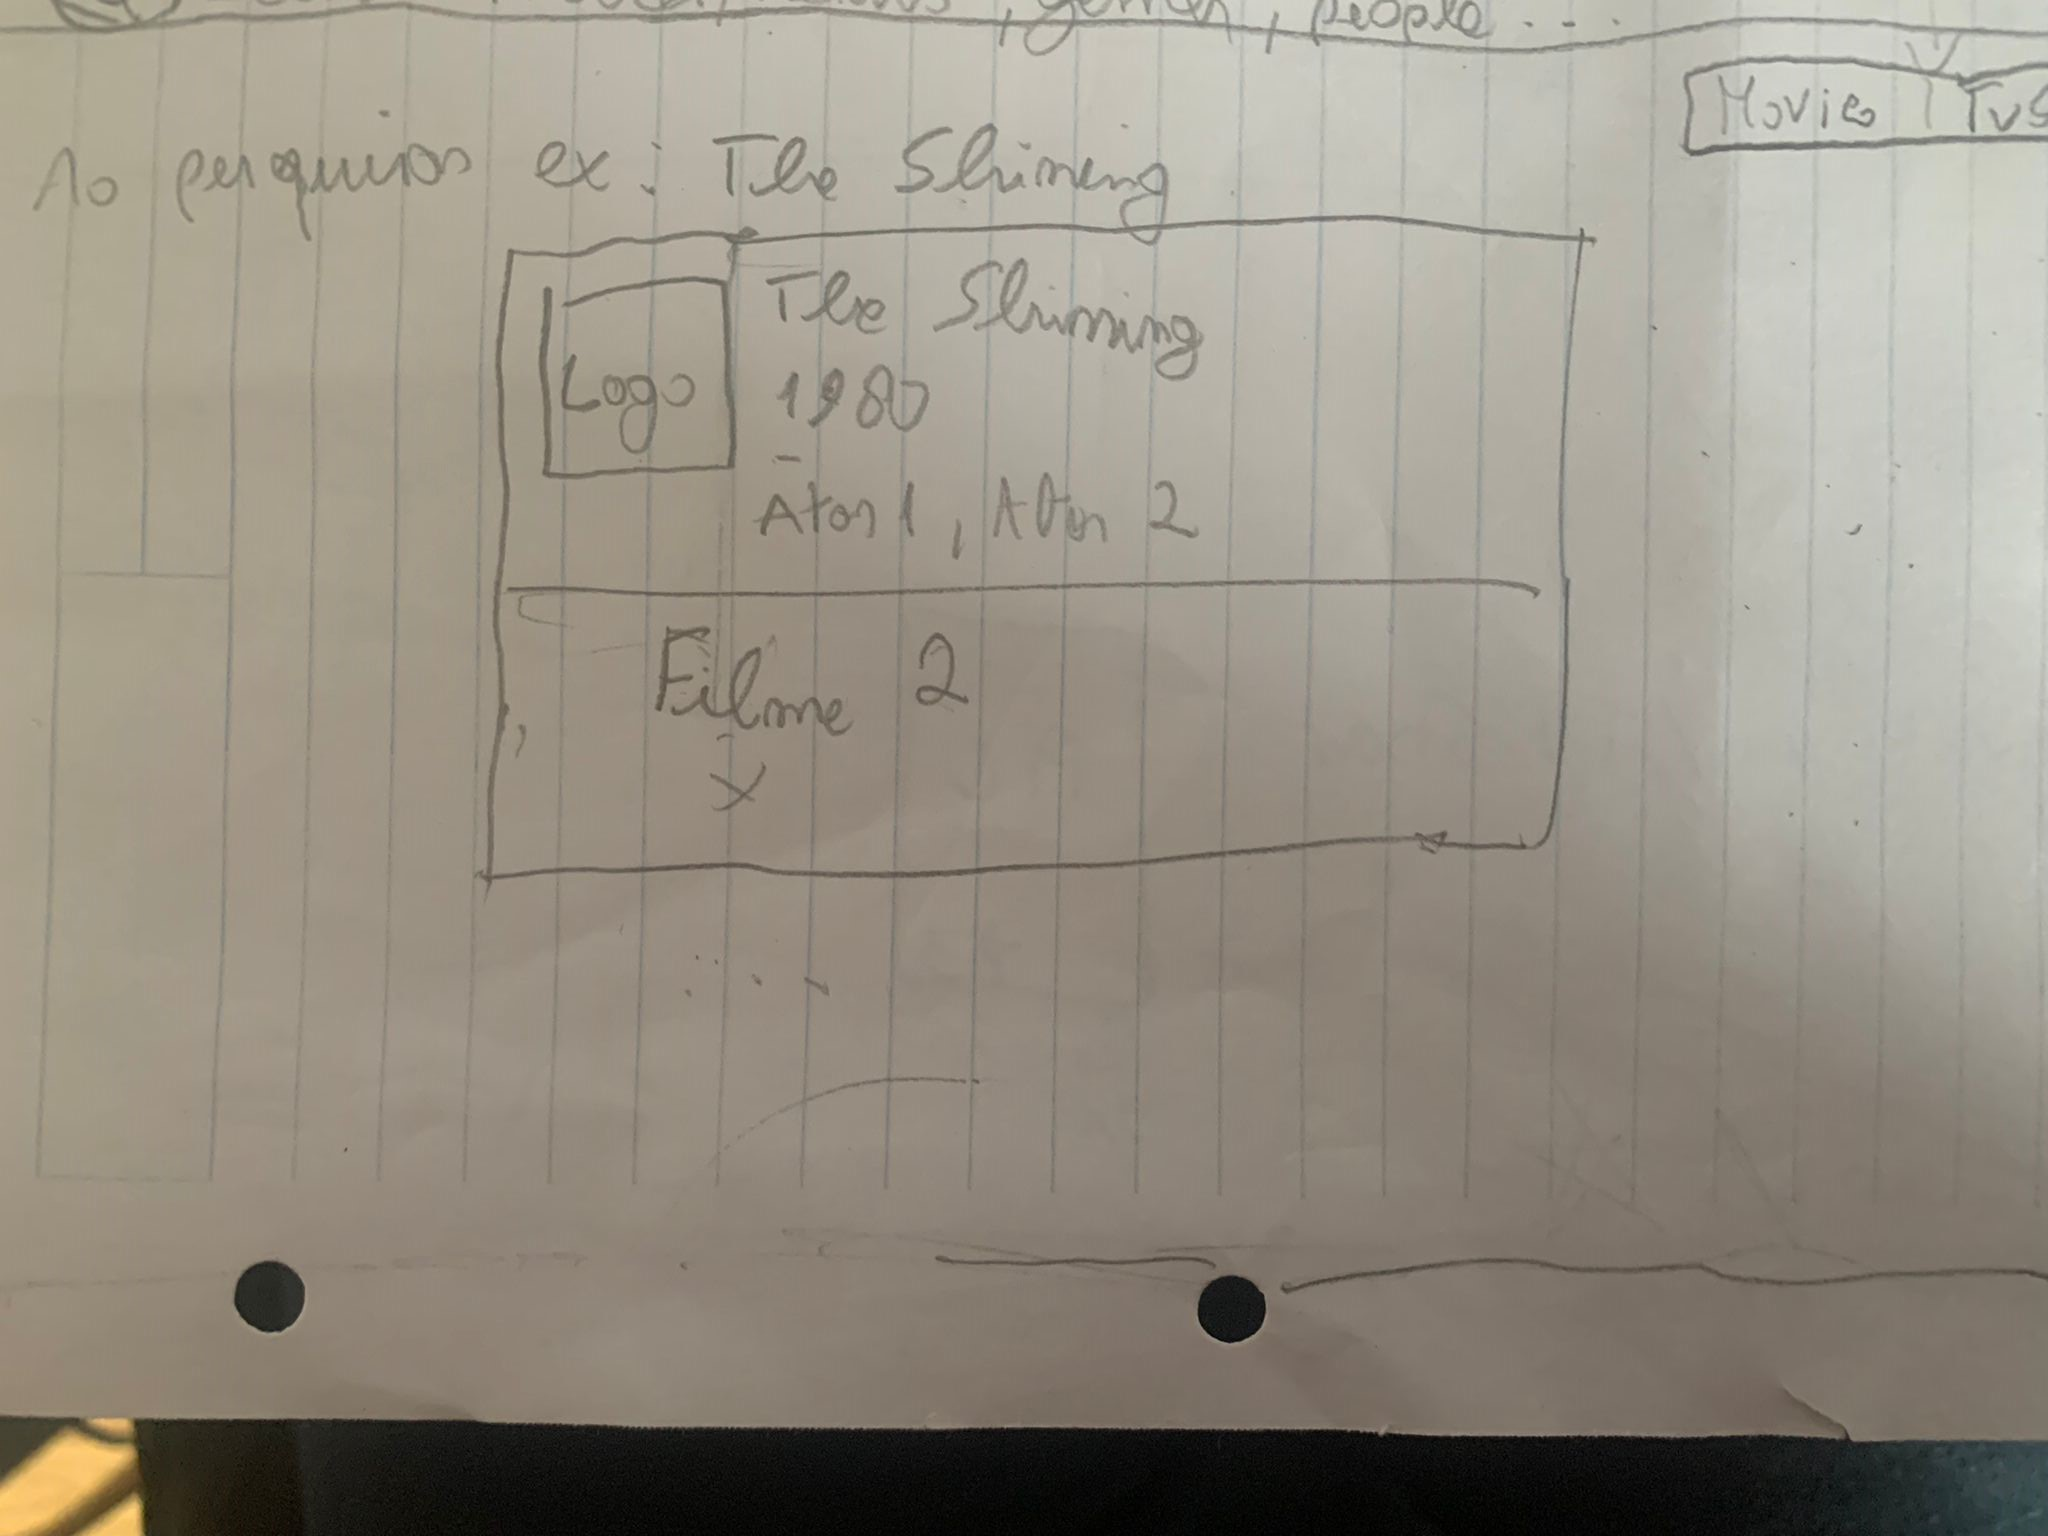 , people...
Movies | TvS
Ao pesquisar ex: The Shining
Logo
The Shinning
1980
Ator 1, Ator 2
Filme 2
x
....